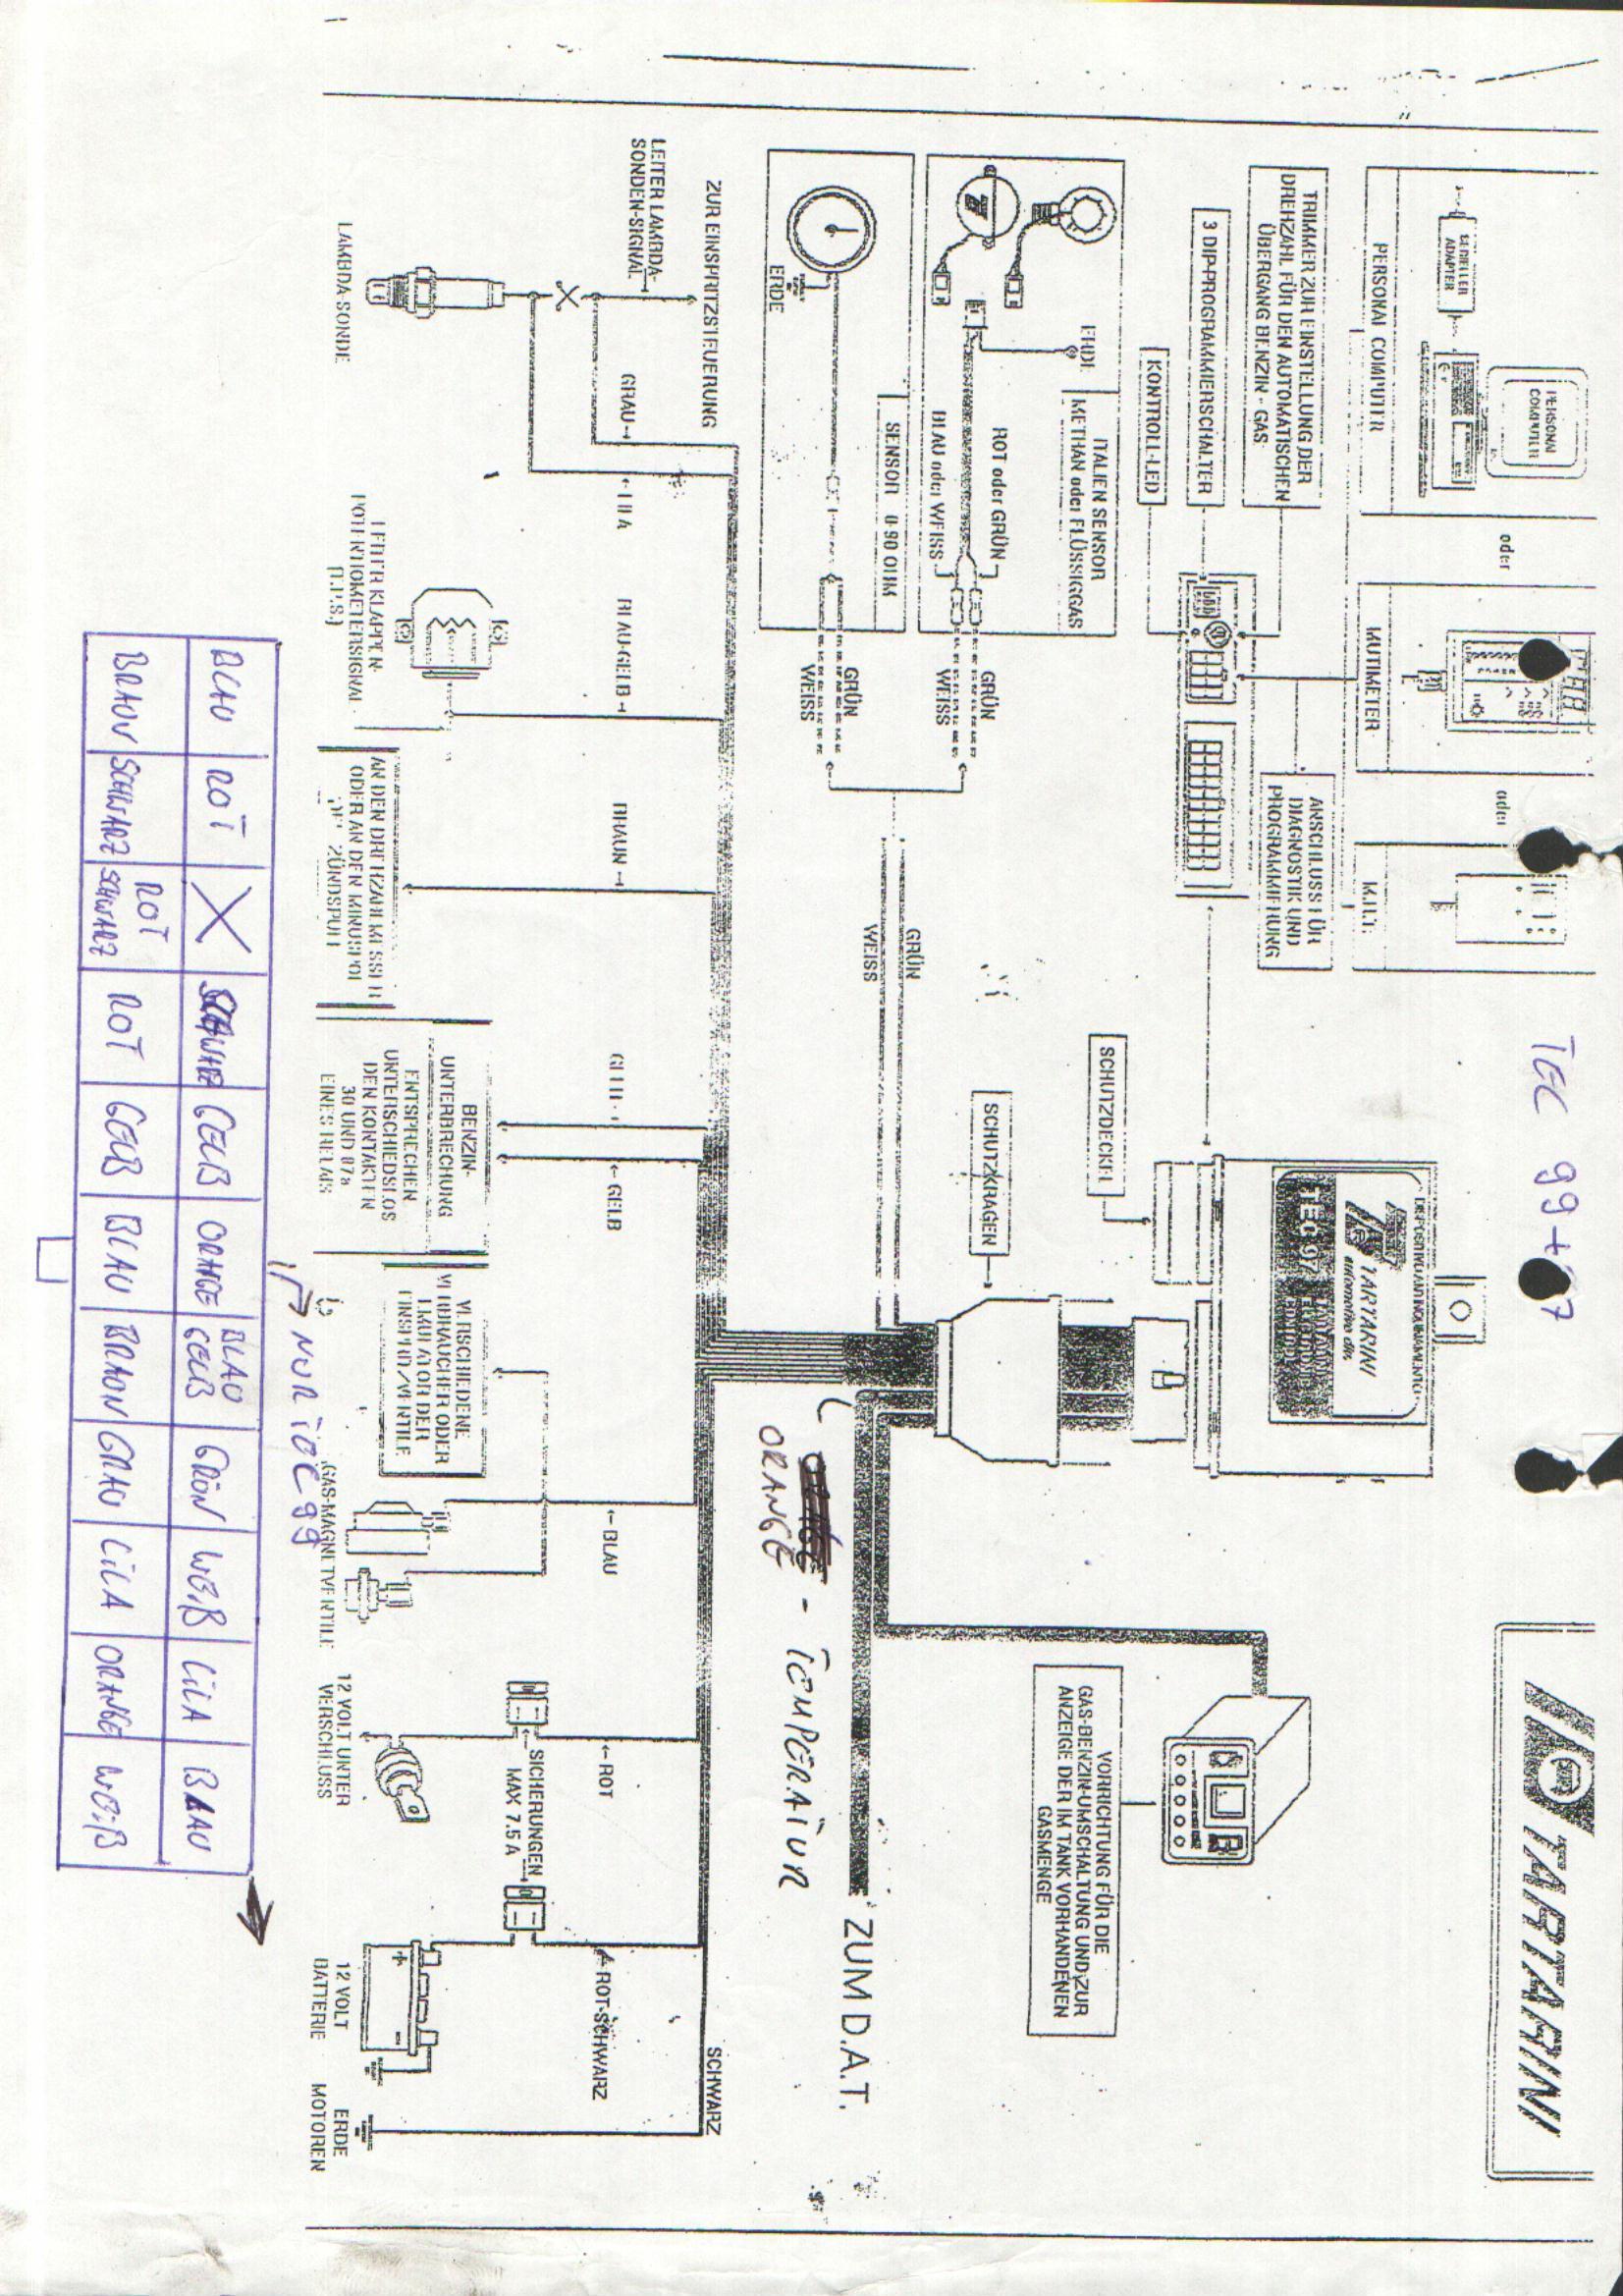 TEC 99 + 97
TARTARINI
PERSONAL
COMPUTER
SERIELLER
ADAPTER
PERSONAL COMPUTER
oder
MUTIMETER
oder
TRIMMER ZUR EINSTELLUNG DER
DREHZAHL FÜR DEN AUTOMATISCHEN
ÜBERGANG BENZIN - GAS
3 DIP-PROGRAMMIERSCHALTER
KONTROLL-LED
ANSCHLUSS FÜR
DIAGNOSTIK UND
PROGRAMMIERUNG
DISPOSITIVO ANTINQUINAMENTO
TARTARINI
TEC 97
SCHUTZDECKEL
SCHUTZKRAGEN
VORRICHTUNG FÜR DIE
GAS-BENZIN-UMSCHALTUNG UND ZUR
ANZEIGE DER IM TANK VORHANDENEN
GASMENGE
ITALIEN SENSOR
METHAN oder FLÜSSIGGAS
ERDE
ROT oder GRÜN
BLAU oder WEISS
GRÜN
WEISS
SENSOR 0-90 OHM
ERDE
GRÜN
WEISS
GRÜN
WEISS
ZUM D.A.T.
ORANGE - TEMPERATUR
ZUR EINSPRITZSTEUERUNG
LEITER LAMBDA-
SONDEN-SIGNAL
GRAU
LILA
BLAU-GELB
BRAUN
GELB
GELB
BLAU
ROT
ROT-SCHWARZ
SCHWARZ
SICHERUNGEN
MAX 7.5 A
LAMBDA-SONDE
LEITER KLAPPEN-
POTENTIOMETERSIGNAL
(T.P.S.)
AN DEN DREHZAHLMESSER
ODER AN DEN MINUSPOL
ZÜNDSPULE
BENZIN-
UNTERBRECHUNG
ENTSPRECHEN
UNTERSCHIEDSLOS
DEN KONTAKTEN
30 UND 87a
EINES RELAIS
VERSCHIEDENE
VERBRAUCHER ODER
EMULATOR DER
EINSPRITZVENTILE
GAS-MAGNETVENTILE
12 VOLT UNTER
VERSCHLUSS
12 VOLT
BATTERIE
ERDE
MOTOREN
NUR TEC 99
BLAU ROT X SCHWARZ GELB ORANGE BLAU GELB GRÜN WEIß LILA BLAU
BRAUN SCHWARZ ROT SCHWARZ ROT GELB BLAU BRAUN GRAU LILA ORANGE WEIß